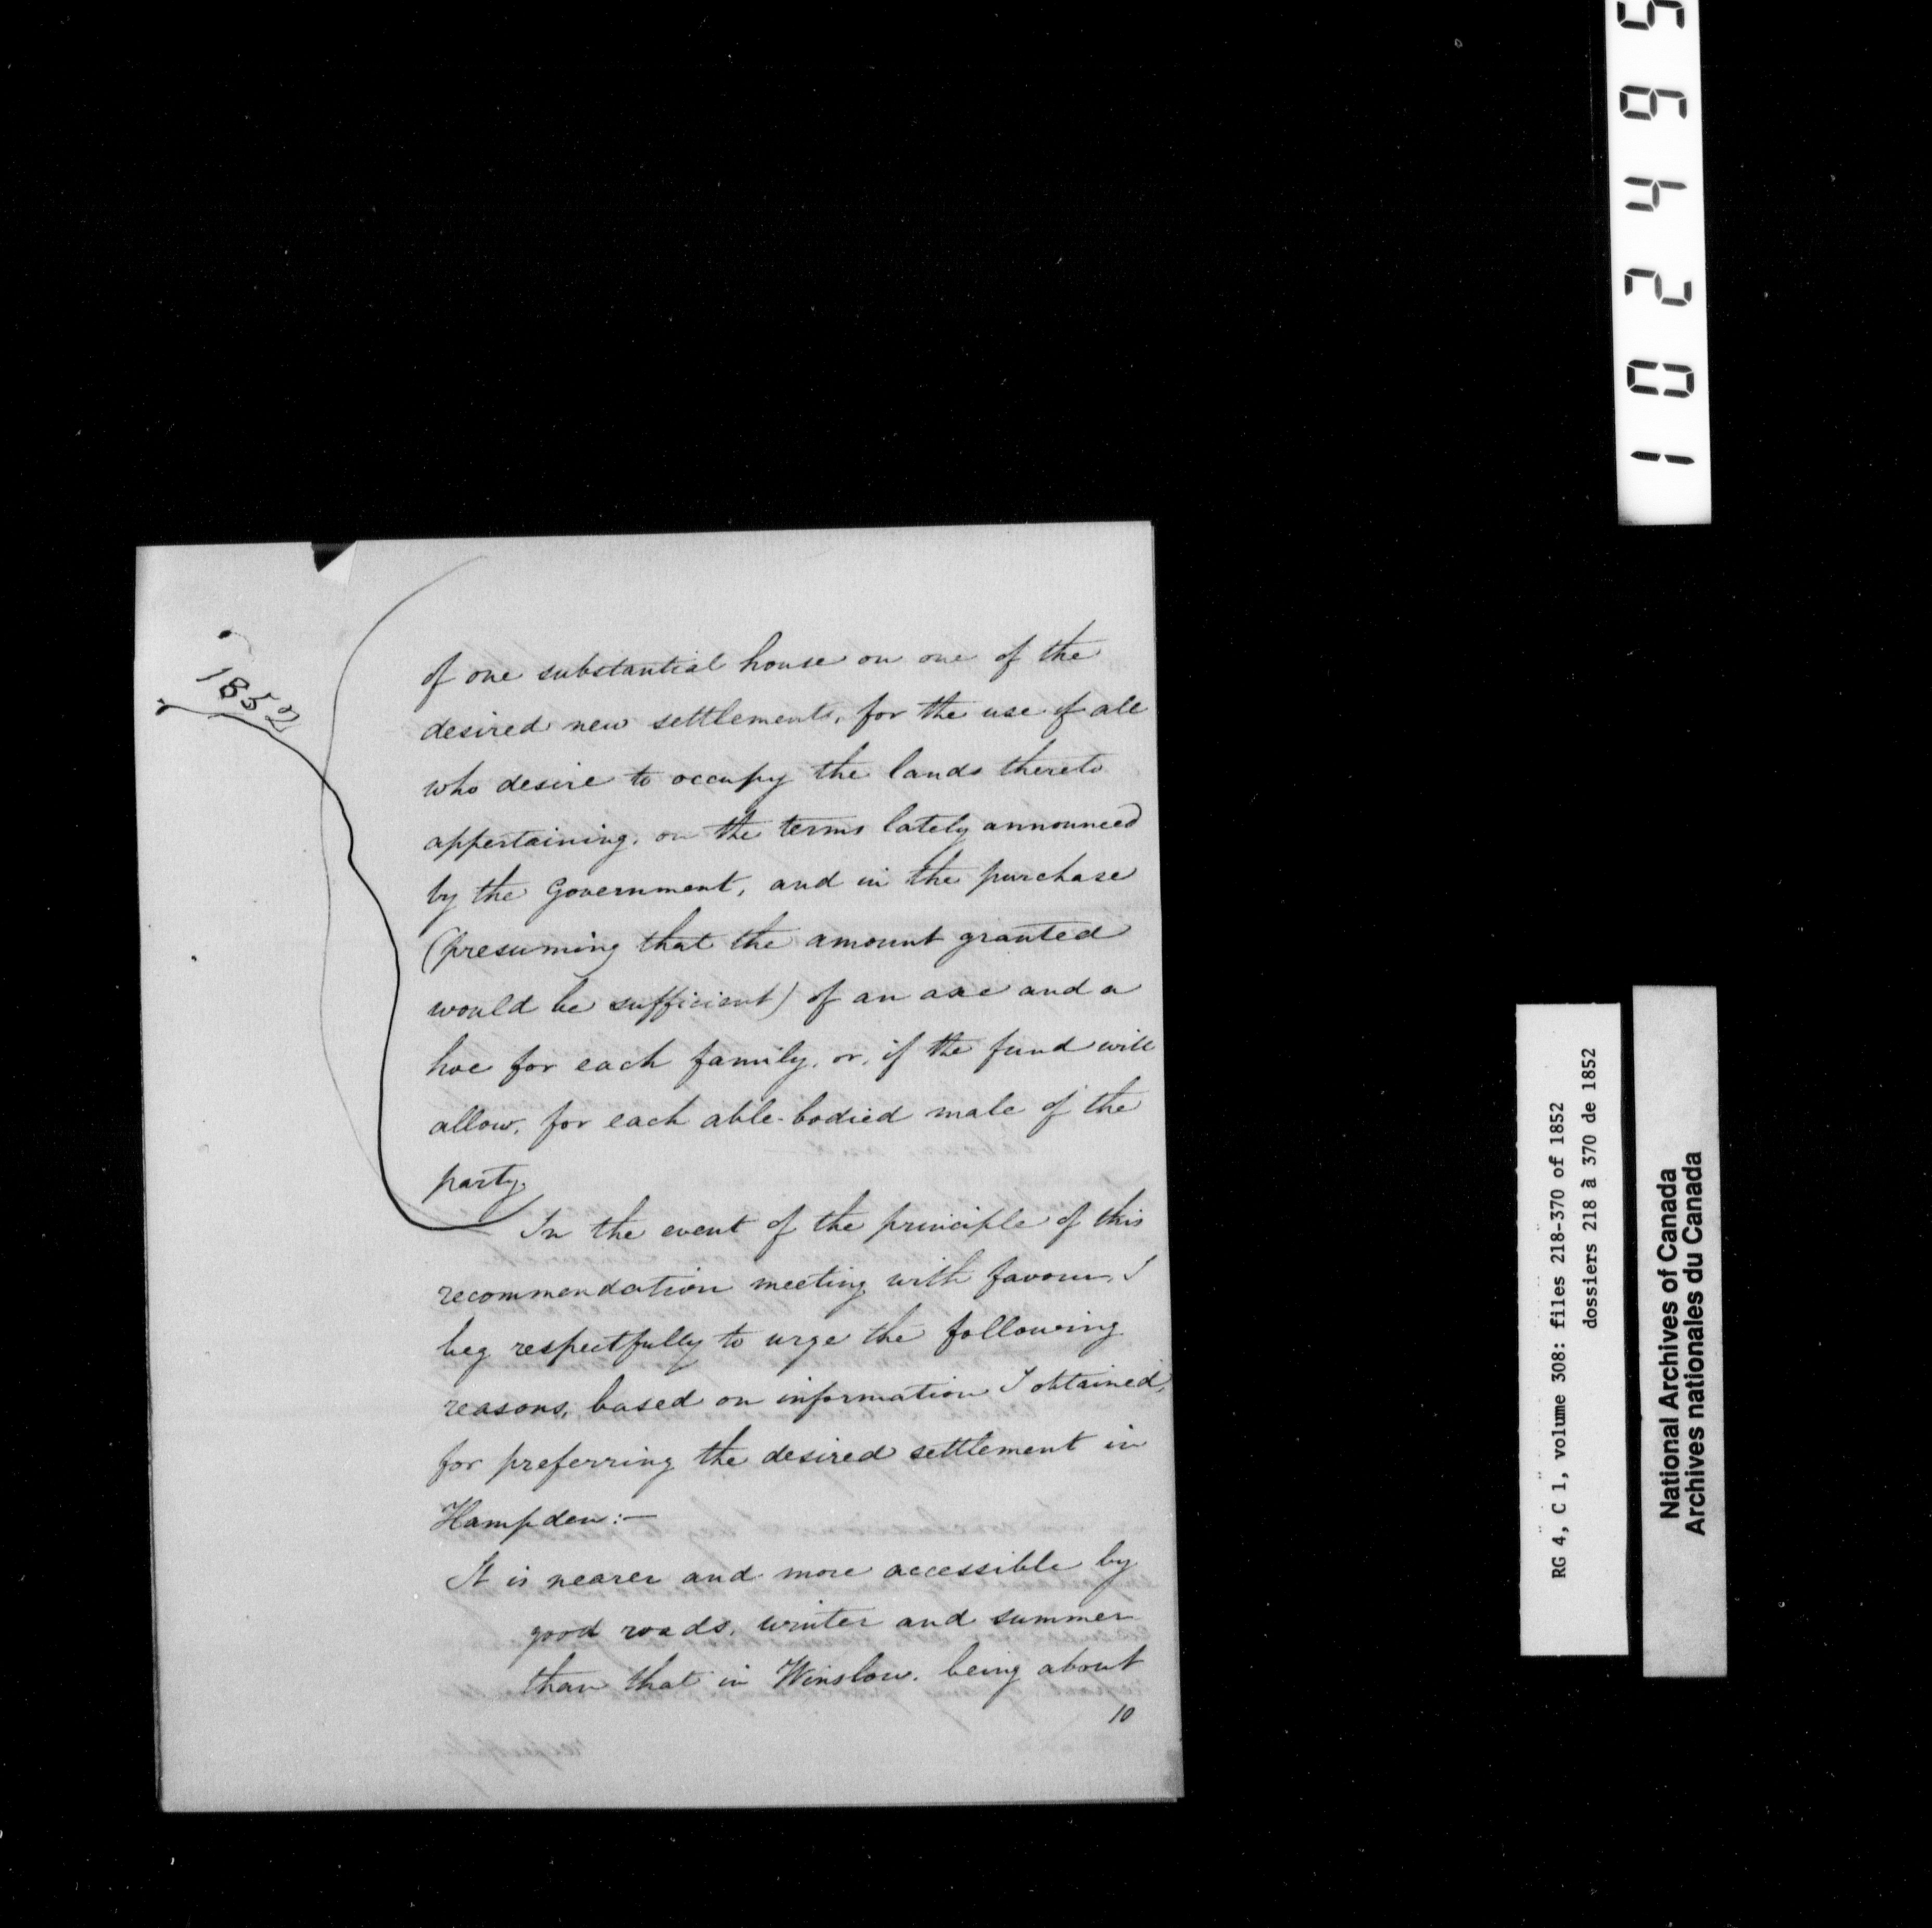 1852
of one substantial house on one of the
desired new settlements, for the use of all
who desire to occupy the lands thereto
appertaining, on the terms lately announced
by the Government, and in the purchase
(presuming that the amount granted
would be sufficient) of an axe and a
hoe for each family, or, if the fund will
allow, for each able-bodied male of the
party.
In the event of the principle of this
recommendation meeting with favour, I
beg respectfully to urge the following
reasons, based on information I obtained,
for preferring the desired settlement in
Hampden:—
It is nearer and more accessible by
good roads, winter and summer
than that in Winslow, being about
10
102495
RG 4, C 1, volume 308: files 218-370 of 1852
dossiers 218 à 370 de 1852
National Archives of Canada
Archives nationales du Canada